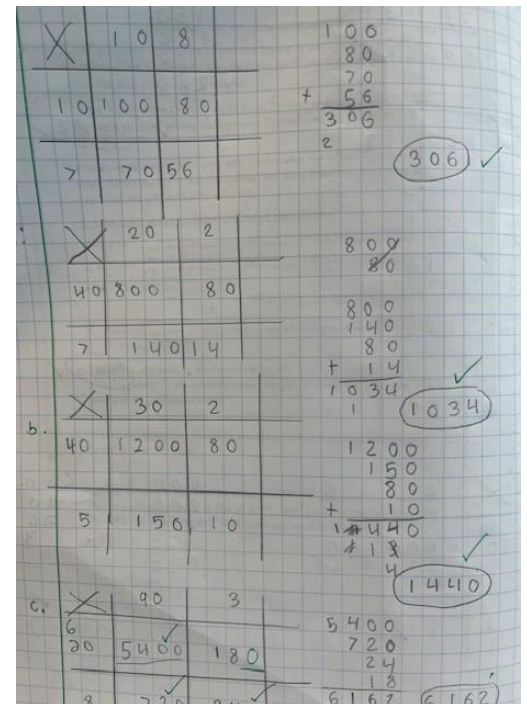 X 10 8
10 100 80
7 70 56
100
80
70
+ 56
306
2
306 ✓
X 20 2
40 800 80
7 140 14
800
80
800
140
80
+ 14
1034
1
1034 ✓
b.
X 30 2
40 1200 80
5 150 10
1200
150
80
+ 10
1440
1440 ✓
c.
X 90 3
5400 180
8 720
5400
720
24
18
6162
6162